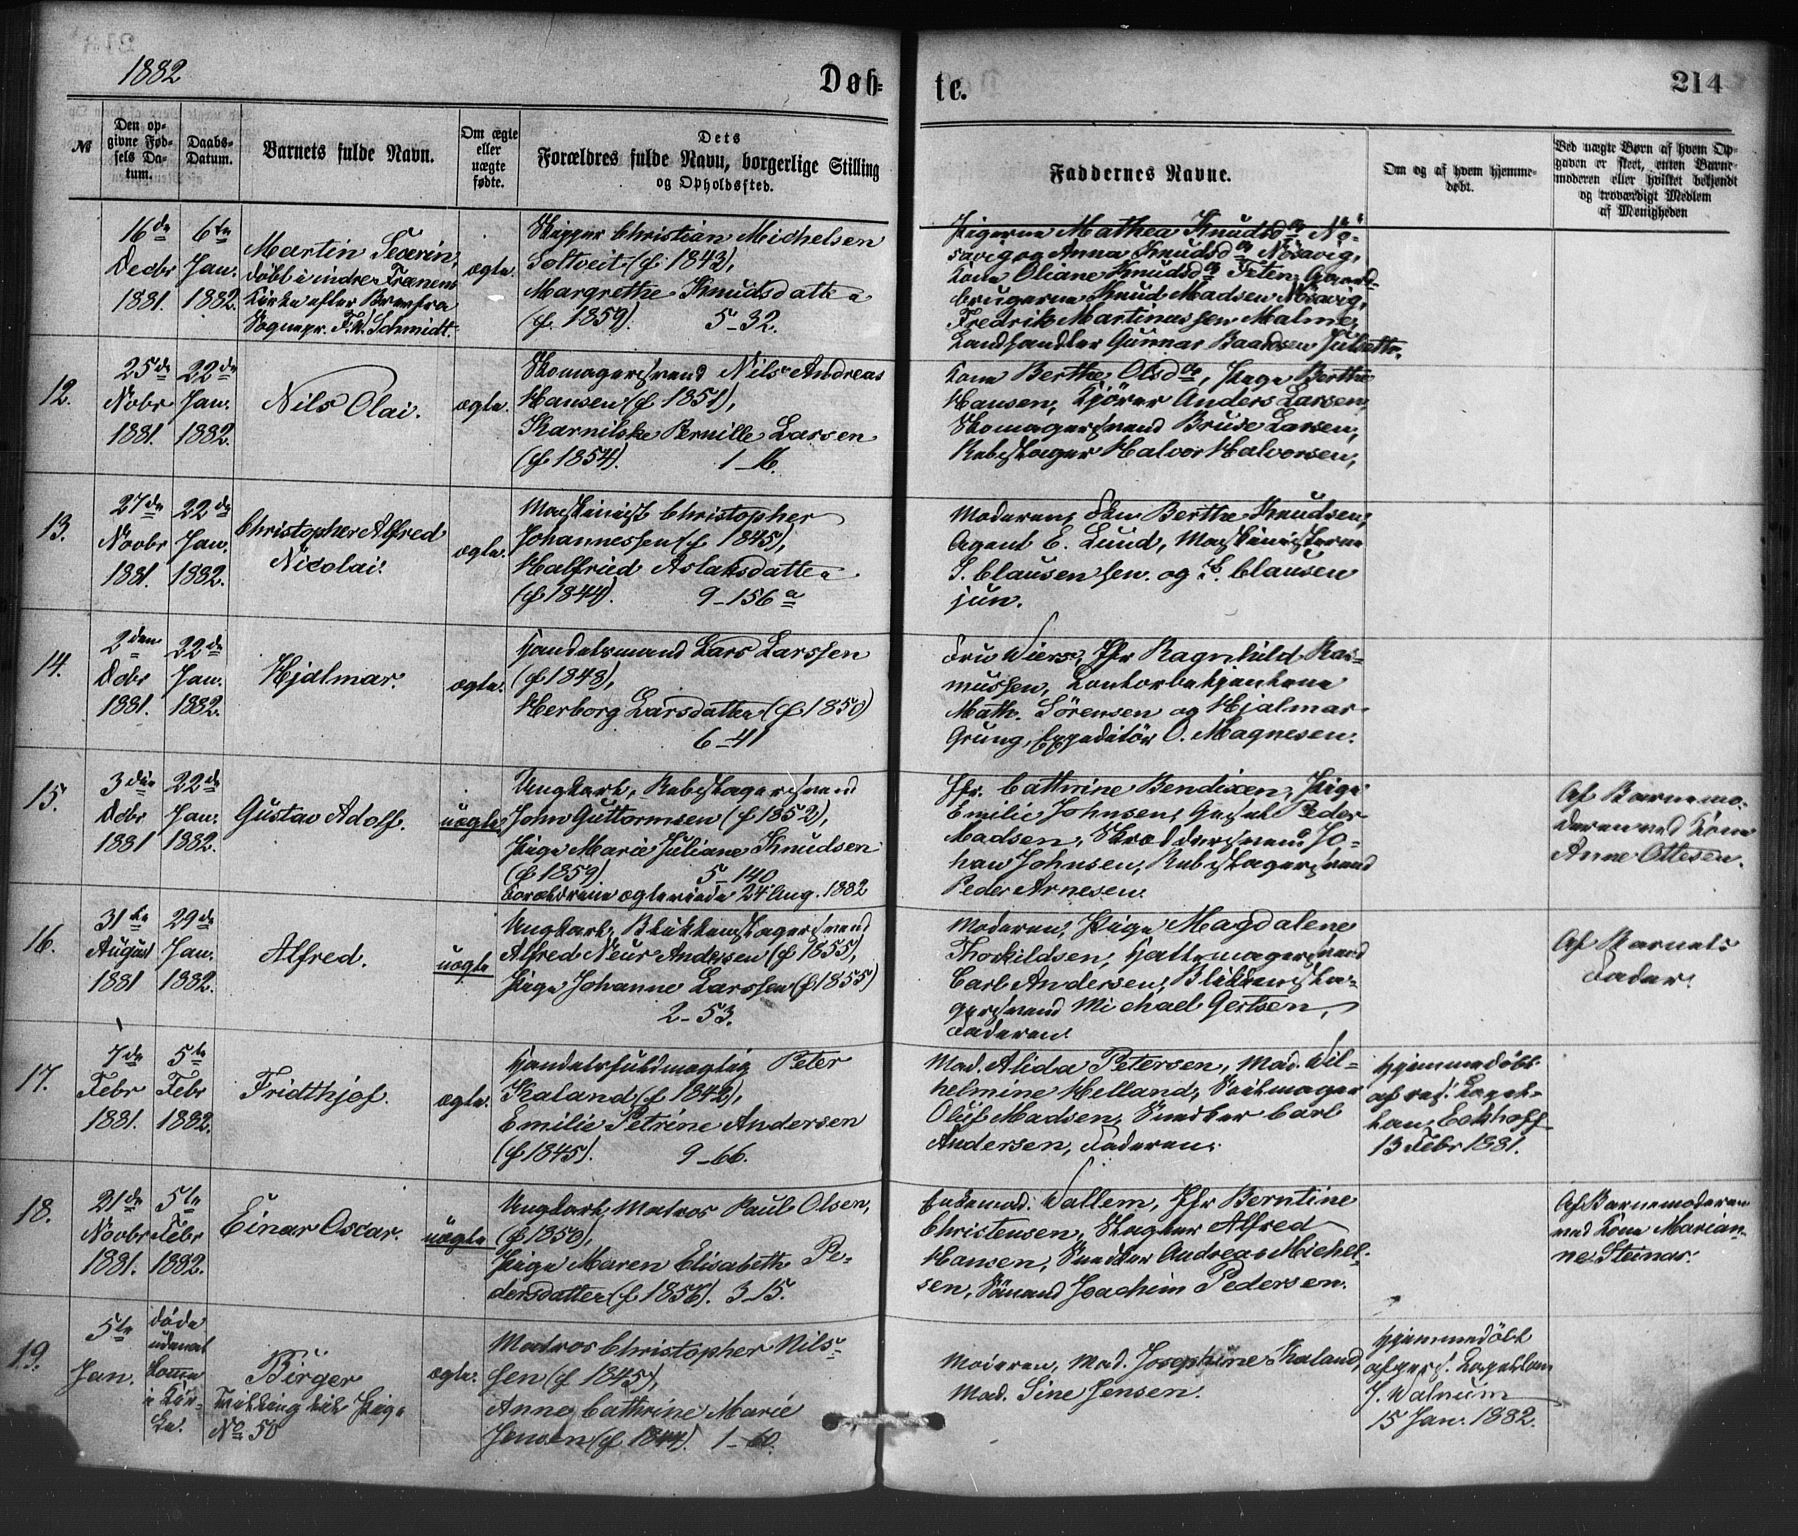 1882
Døb=
te.
214
№
Den op-
givne Fød-
sels Da-
tum.
Daabs-
Datum.
Barnets fulde Navn.
Om ægte
eller
uægte
fødte.
Dets
Forældres fulde Navn, borgerlige Stilling
og Opholdssted.
Faddernes Navne.
Om og af hvem hjemme-
døbt.
Ved uægte Børn af hvem Op-
gaven er skeet, enten Barne-
moderen eller hvilket bekjendt
og troværdigt Medlem
af Menigheden
16de
Decbr
1881.
6te
Jan.
1882.
Martin Severin,
døbt i indre Frænens
Kirke efter Brev fra
Sognepr. F.W. Schmidt.
ægte.
Skipper Christian Michelsen
Soltveit (f 1843),
Margrethe Knudsdatter
(f. 1859). 5-32.
Pigerne Mathea Knudsdr Nø-
savig og Anna Knudsdr Nøsavig,
Kone Oliane Knudsdr Freten, Gaard-
brugerne Knud Madsen Nøsavig,
Fredrik Martinussen Malme,
Landhandler Gunnar Baardsen Julsætte.
12.
25de
Novbr
1881.
22de
Jan.
1882.
Nils Olai.
ægte.
Skomagersvend Nils Andreas
Hansen (f 1851),
Karnilske Pernille Larsen
(f 1854). 1-16.
Kone Berthe Olsdr, Pige Berthe
Hansen, Kjører Anders Larsen,
Skomagersvend Bruse Larsen,
Rebslager Halvor Halvorsen,
13.
27de
Novbr
1881.
22de
Jan.
1882.
Christopher Alfred
Nicolai.
ægte.
Maskinist Christopher
Johannessen (f 1845),
Halfried Aslaksdatter
(f 1844). 9-156 a
Moderen, Fru Berthe Knudsen,
Agent E. Lund, Maskinisterne
S. Clausen sen. og S. Clausen
jun.
14.
2den
Dcbr
1881.
22de
Jan.
1882.
Hjalmar.
ægte.
Handelsmand Lars Larssen
(f 1848),
Herborg Larsdatter (f. 1850)
6-41
Fru Wiers, Jfr Ragnhild Ras-
mussen, Kontorbetjentene
Math. Sørensen og Hjalmar
Grung, Expeditør O. Magnesen.
15.
3die
Dcbr
1881
22de
Jan.
1882.
Gustav Adolf.
uægte.
Ungkarl, Rebslagersvend
John Guttormsen (f 1852),
Pige Marie Juliane Knudsen
(f 1859) 5-140
Forældrene ægteviede 24 Aug. 1882
Jfr. Cathrine Bendixen, Pige
Emilie Johnsen, Gesel Peder
Madsen, Skræddersvend Jo-
han Johnsen, Rebslagersvend
Peder Arnesen.
Af Barnemo-
deren ved Kone
Anne Ottesen.
16.
31te
August
1881
29de
Jan.
1882.
Alfred.
uægte
Ungkarl, Blikkenslagersvend
Alfred Neur Andersen (f 1855),
Pige Johanne Larssen (f 1855)
2-53.
Moderen, Pige Magdalene
Thorkildsen, Hattemagersvend
Carl Andersen, Blikkensla-
gersvend Michael Gertsen,
Faderen.
Af Barnets
Fader.
17.
7de
Febr
1881.
5te
Febr
1882.
Fridthjof.
ægte.
Handelsfuldmægtig Peter
Kaland (f 1848),
Emilie Petrine Andersen
(f 1845). 9-66.
Mad. Alida Petersen, Mad. Wil-
helmine Helland, Seilmager
Oluf Madsen, Snedker Carl
Andersen, Faderen.
Hjemmedøbt
af res. Kapel-
lan Eckhoff
13 Febr 1881.
18.
21de
Novbr
1881.
5te
Febr
1882.
Einar Oscar.
uægte
Ungkarl, Matros Paul Olsen,
(f 1850),
Pige Maren Elisabeth Pe-
dersdatter (f. 1856). 3-15.
Enkemad. Wallem, Jfr Berntine
Christensen, Slagter Alfred
Hansen, Snedker Andreas Michel-
sen, Sømand Joachim Pedersen.
Af Barnemoderen
ved Kone Marian-
ne Steinar.
19.
5te
Jan.
døde
udenat
komme
i Kir-
ke.
Birger
Tvilling til Pige
No 50
ægte.
Matros Christopher Nils-
sen (f 1845),
Anne Cathrine Marie
Jensen (f 1844). 1-60.
Moderen, Mad. Josephine Kaland,
Mad. Sine Jensen.
Hjemmedøbt
af pers. Kapellan
J. Walnum
15 Jan. 1882.